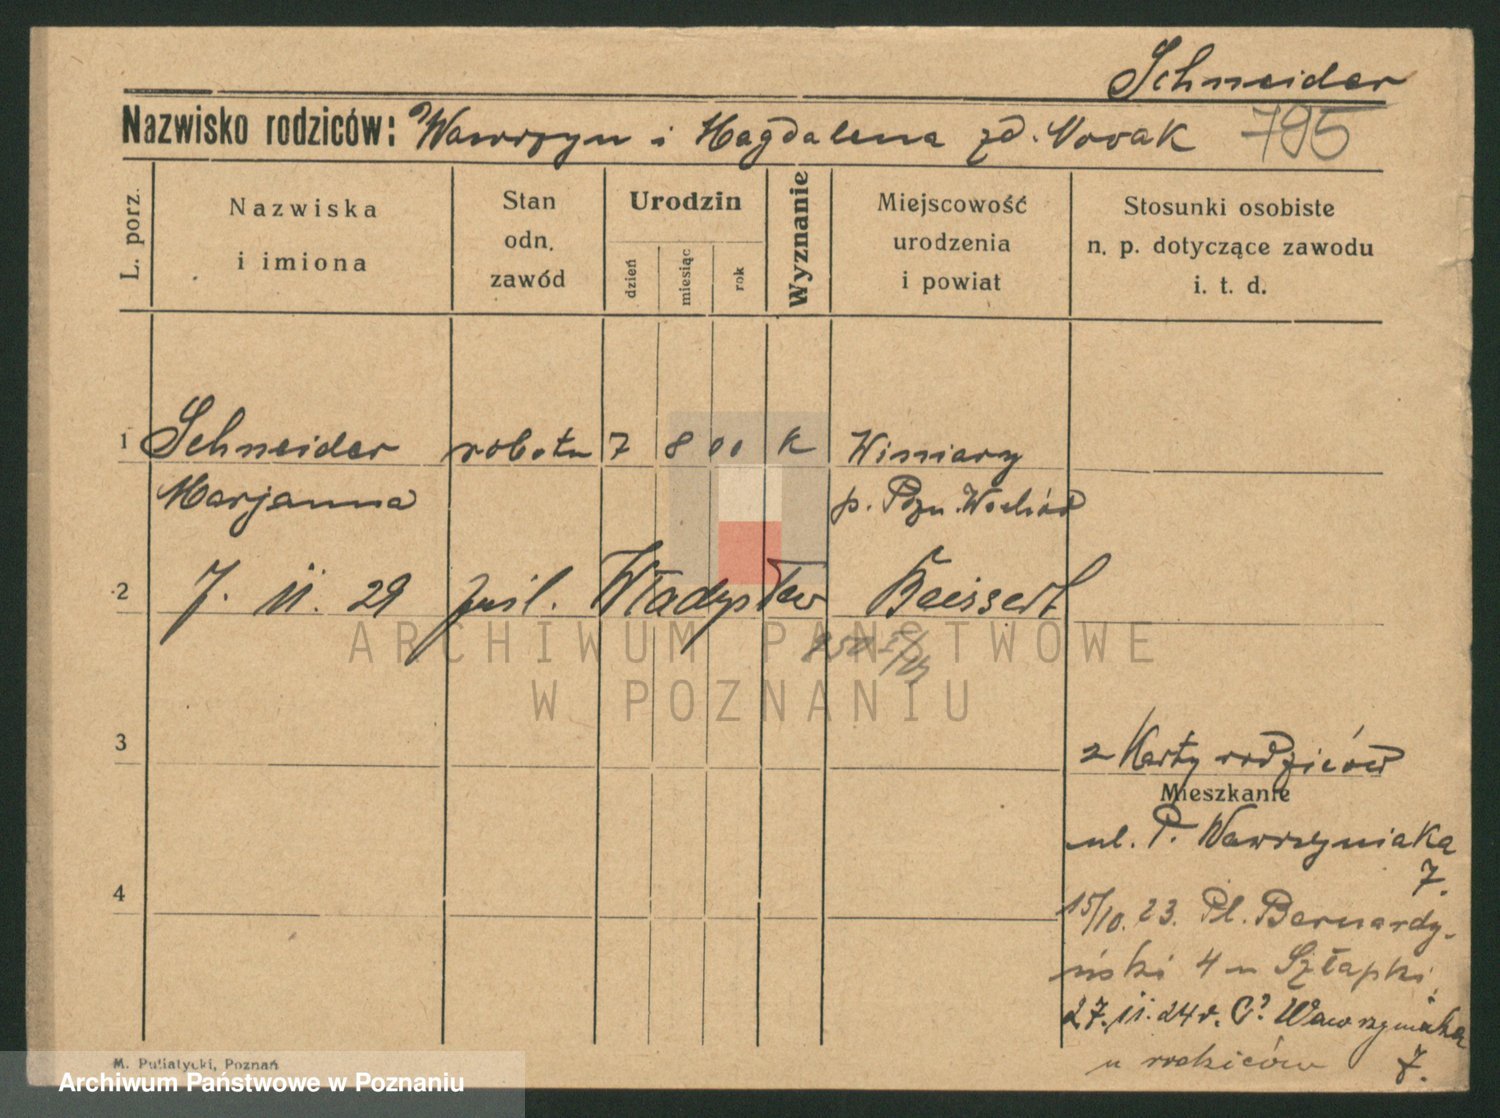 Schneider
Nazwisko rodziców: Wawrzyn i Magdalena zd. Novak 795
L. porz.
Nazwiska
i imiona
Stan
odn.
zawód
Urodzin
dzień
miesiąc
rok
Wyznanie
Miejscowość
urodzenia
i powiat
Stosunki osobiste
n. p. dotyczące zawodu
i. t. d.
1 Schneider robotn 7 8 00 K Winiary
Marjanna p. Pozn. Wschód
2 7. 11. 29 zaśl. Władysław Beissert
ARCHIWUM PAŃSTWOWE
W POZNANIU
3
z Karty rodziców
Mieszkanie
ul. P. Wawrzyniaka
7.
4
15/10. 23. Pl. Bernardy-
ński 4 u Szłapki
27. 11. 24 r. Wawrzyniaka
u rodziców 7.
M. Putiatycki, Poznań
Archiwum Państwowe w Poznaniu